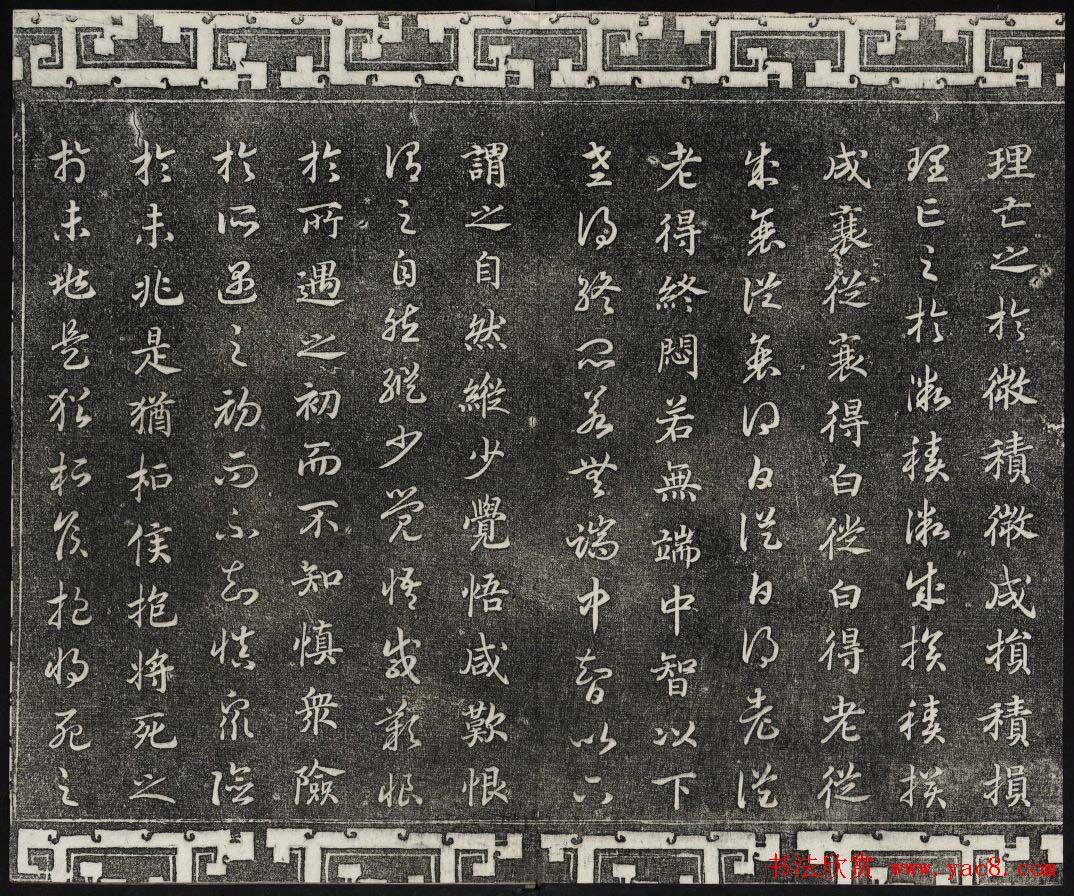 理亡之於微積微成損積損
理亡之於微積微成損積損
成衰從衰得白從白得老從
成衰從衰得白從白得老從
老得終悶若無端中智以下
老得終悶若無端中智以下
謂之自然縱少覺悟咸歎恨
謂之自然縱少覺悟咸歎恨
於所遇之初而不知慎眾險
於所遇之初而不知慎眾險
於未兆是猶桓侯抱將死之
於未兆是猶桓侯抱將死之
书法欣赏 www.yac8.com